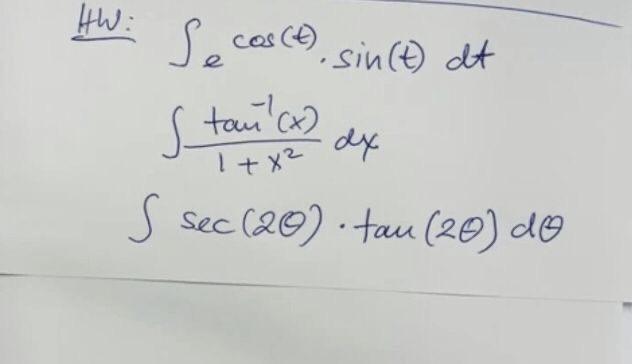 HW: ∫ e^cos(t) . sin(t) dt
∫ tan⁻¹(x) / 1 + x² dx
∫ sec(2θ) · tan(2θ) dθ